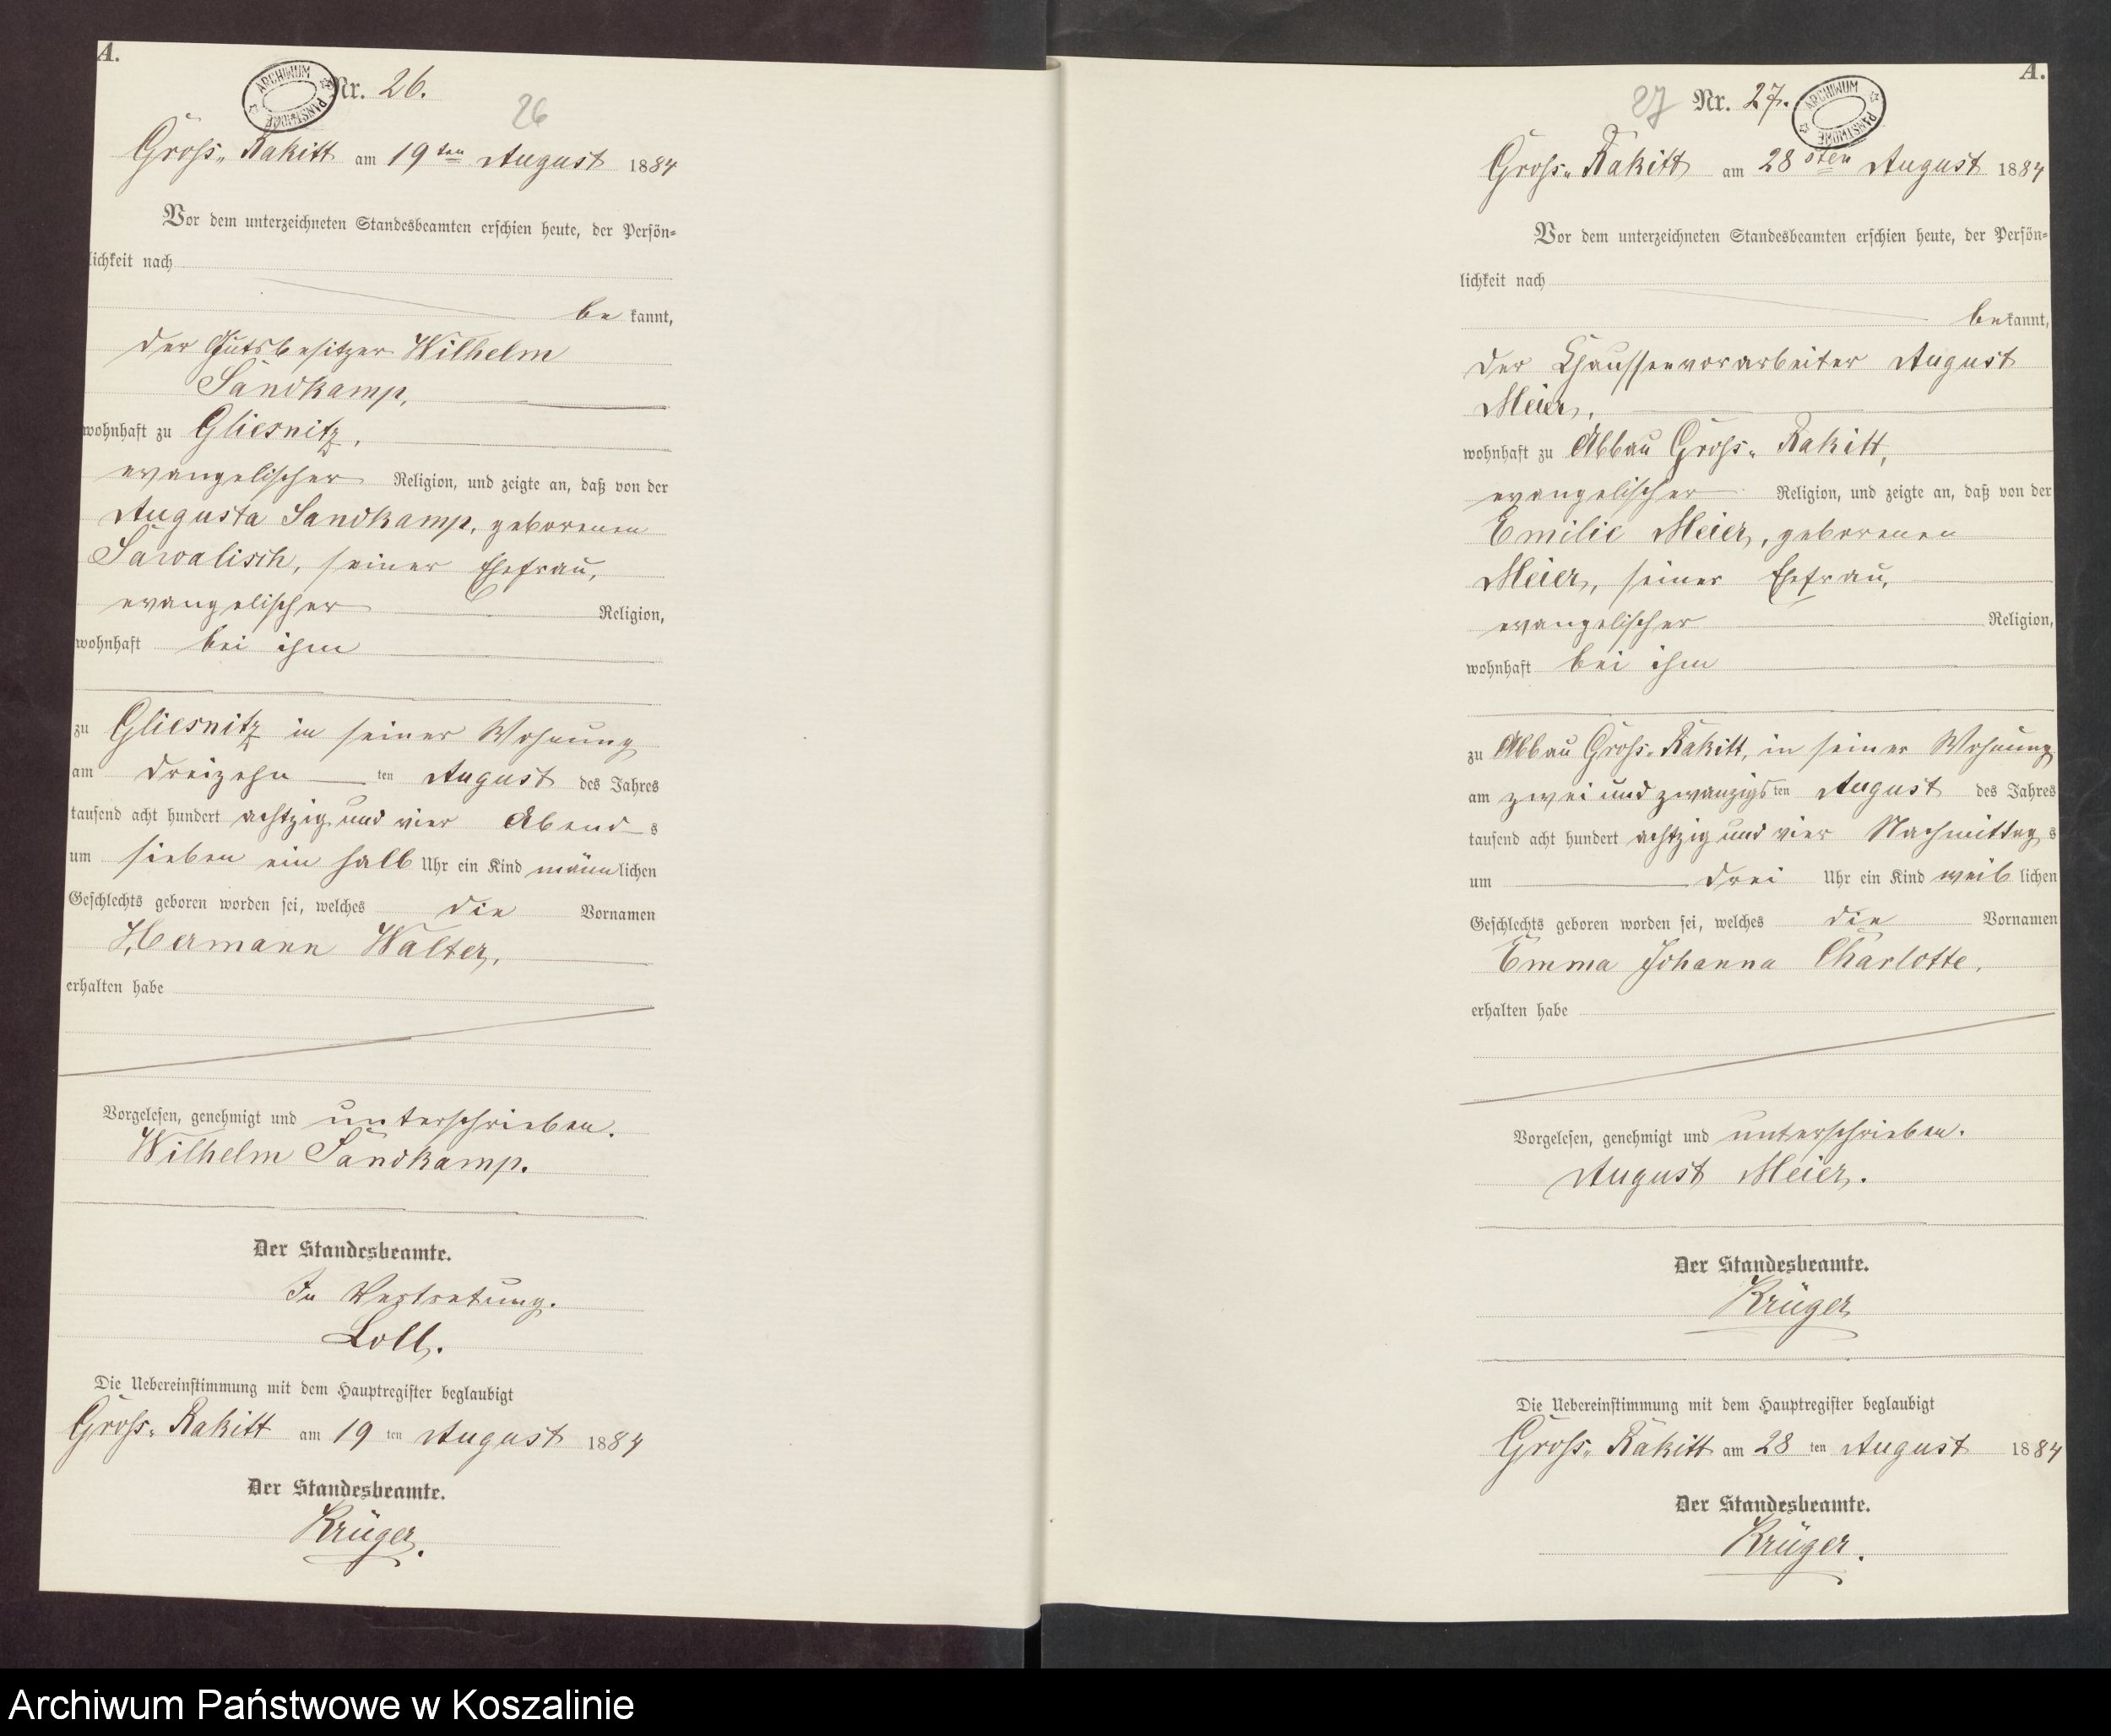 A.
ARCHIWUM PAŃSTWOWE
Nr. 26.
26
Gross-Rakitt am 19ten August 1884
Vor dem unterzeichneten Standesbeamten erschien heute, der Persön-
lichkeit nach
be kannt,
der Gutsbesitzer Wilhelm
Sandkamp,
wohnhaft zu Gliesnitz,
evangelischer Religion, und zeigte an, daß von der
Augusta Sandkamp, geborenen
Sawalisch, seiner Ehefrau,
evangelischer Religion,
wohnhaft bei ihm
zu Gliesnitz in seiner Wohnung
am dreizehn ten August des Jahres
tausend acht hundert achtzig und vier Abend s
um sieben ein halb Uhr ein Kind männ lichen
Geschlechts geboren worden sei, welches die Vornamen
Hermann Walter,
erhalten habe
Vorgelesen, genehmigt und unterschrieben.
Wilhelm Sandkamp.
Der Standesbeamte.
In Vertretung.
Loll.
Die Uebereinstimmung mit dem Hauptregister beglaubigt
Gross-Rakitt am 19 ten August 1884
Der Standesbeamte.
Krüger.
A.
27
Nr. 27.
ARCHIWUM PAŃSTWOWE
Gross-Rakitt am 28sten August 1884
Vor dem unterzeichneten Standesbeamten erschien heute, der Persön-
lichkeit nach
be kannt,
der Chausseevorarbeiter August
Meier,
wohnhaft zu Abbau Gross-Rakitt,
evangelischer Religion, und zeigte an, daß von der
Emilie Meier, geborenen
Meier, seiner Ehefrau,
evangelischer Religion,
wohnhaft bei ihm
zu Abbau Gross-Rakitt, in seiner Wohnung
am zwei und zwanzigs ten August des Jahres
tausend acht hundert achtzig und vier Nachmittag s
um drei Uhr ein Kind weib lichen
Geschlechts geboren worden sei, welches die Vornamen
Emma Johanna Charlotte.
erhalten habe
Vorgelesen, genehmigt und unterschrieben.
August Meier.
Der Standesbeamte.
Krüger
Die Uebereinstimmung mit dem Hauptregister beglaubigt
Gross-Rakitt am 28 ten August 1884
Der Standesbeamte.
Krüger.
Archiwum Państwowe w Koszalinie